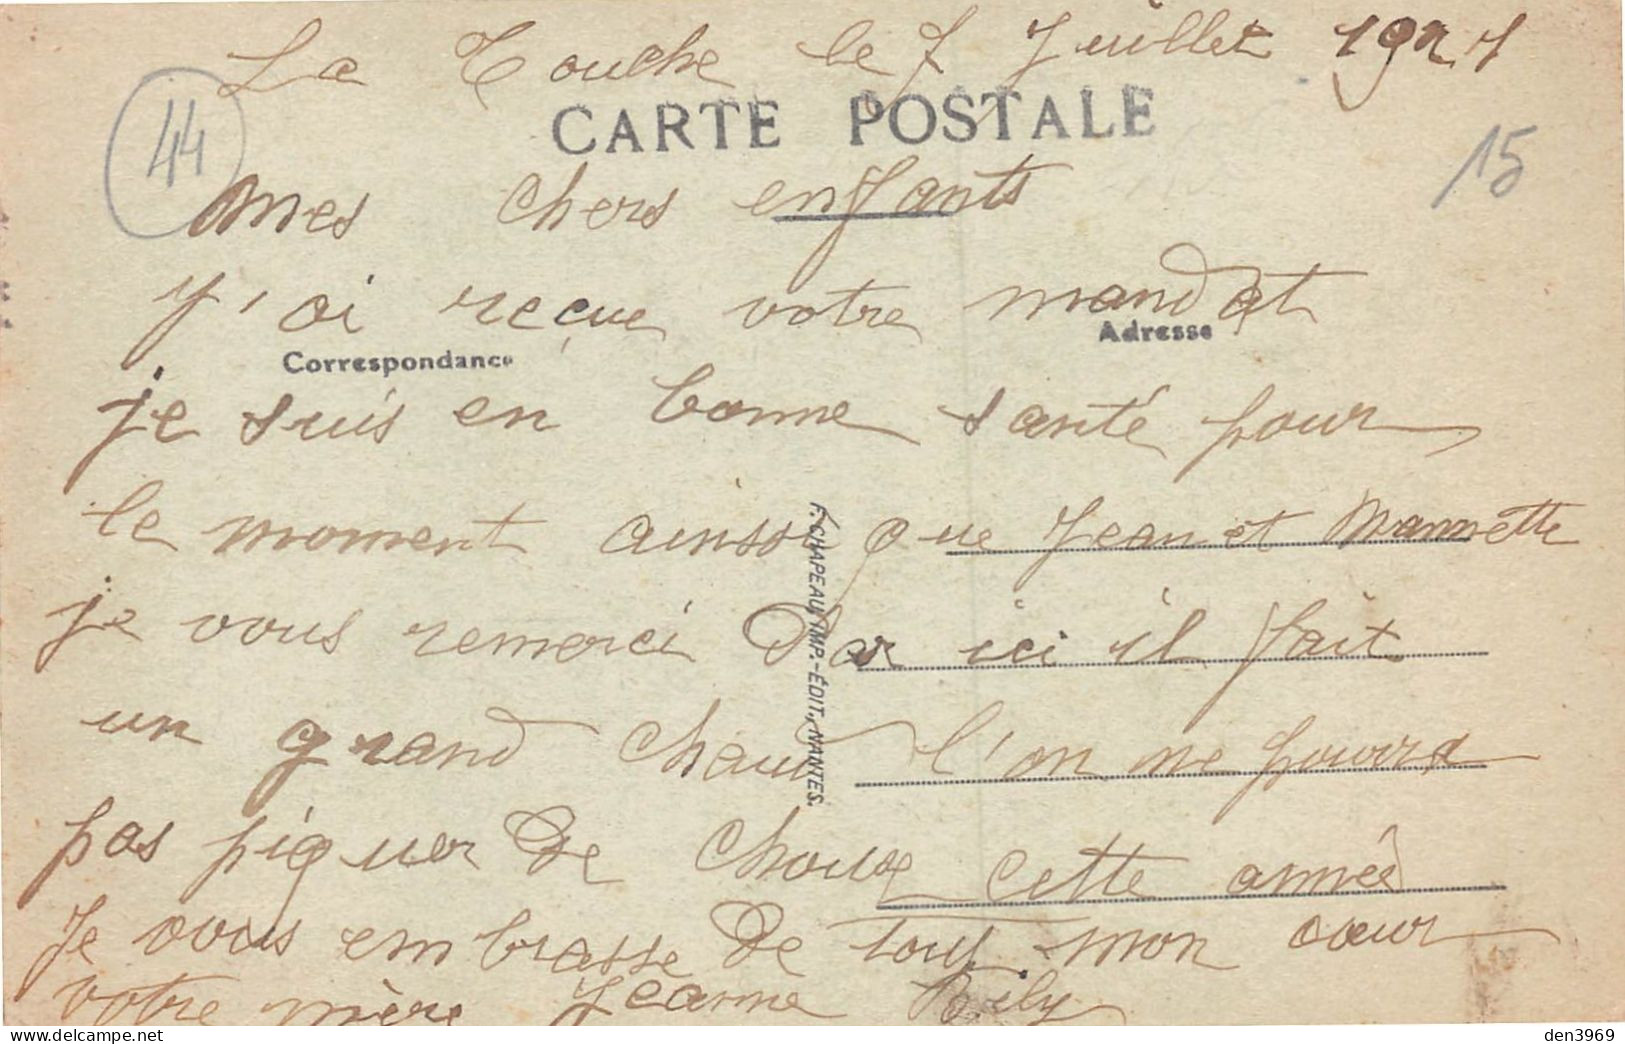 La Touche le 7 Juillet 1921
CARTE POSTALE
44
15
Mes chers enfants
J'ai reçue votre mandat
Adresse
Correspondance
je suis en bonne santé pour
le moment ainssi que Jean et Mannette
je vous remerci Par ici il fait
un grand chaud l'on ne pourra
pas piquer de choux cette année
Je vous embrasse de tout mon cœur
votre mère Jeanne
F. CHAPEAU, IMP.-ÉDIT., NANTES.
den3969